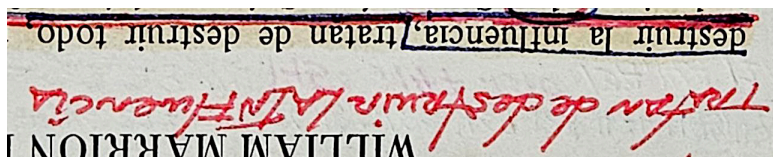 WILLIAM MARRION
Tratan de destruir LA INFluencia
destruir la influencia, tratan de destruir todo